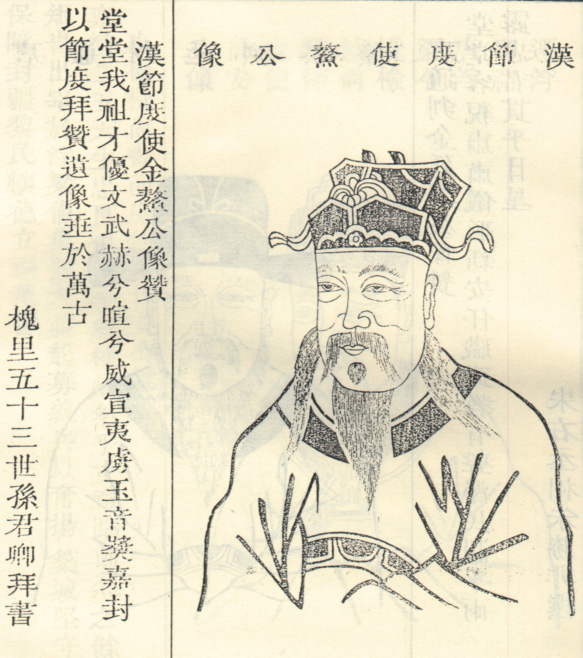 漢節度使鰲公像
漢節度使金鰲公像贊
堂堂我祖才優文武赫兮暄兮威宣夷虜玉音獎嘉封
以節度拜贊遺像垂於萬古
槐里五十三世孫君卿拜書